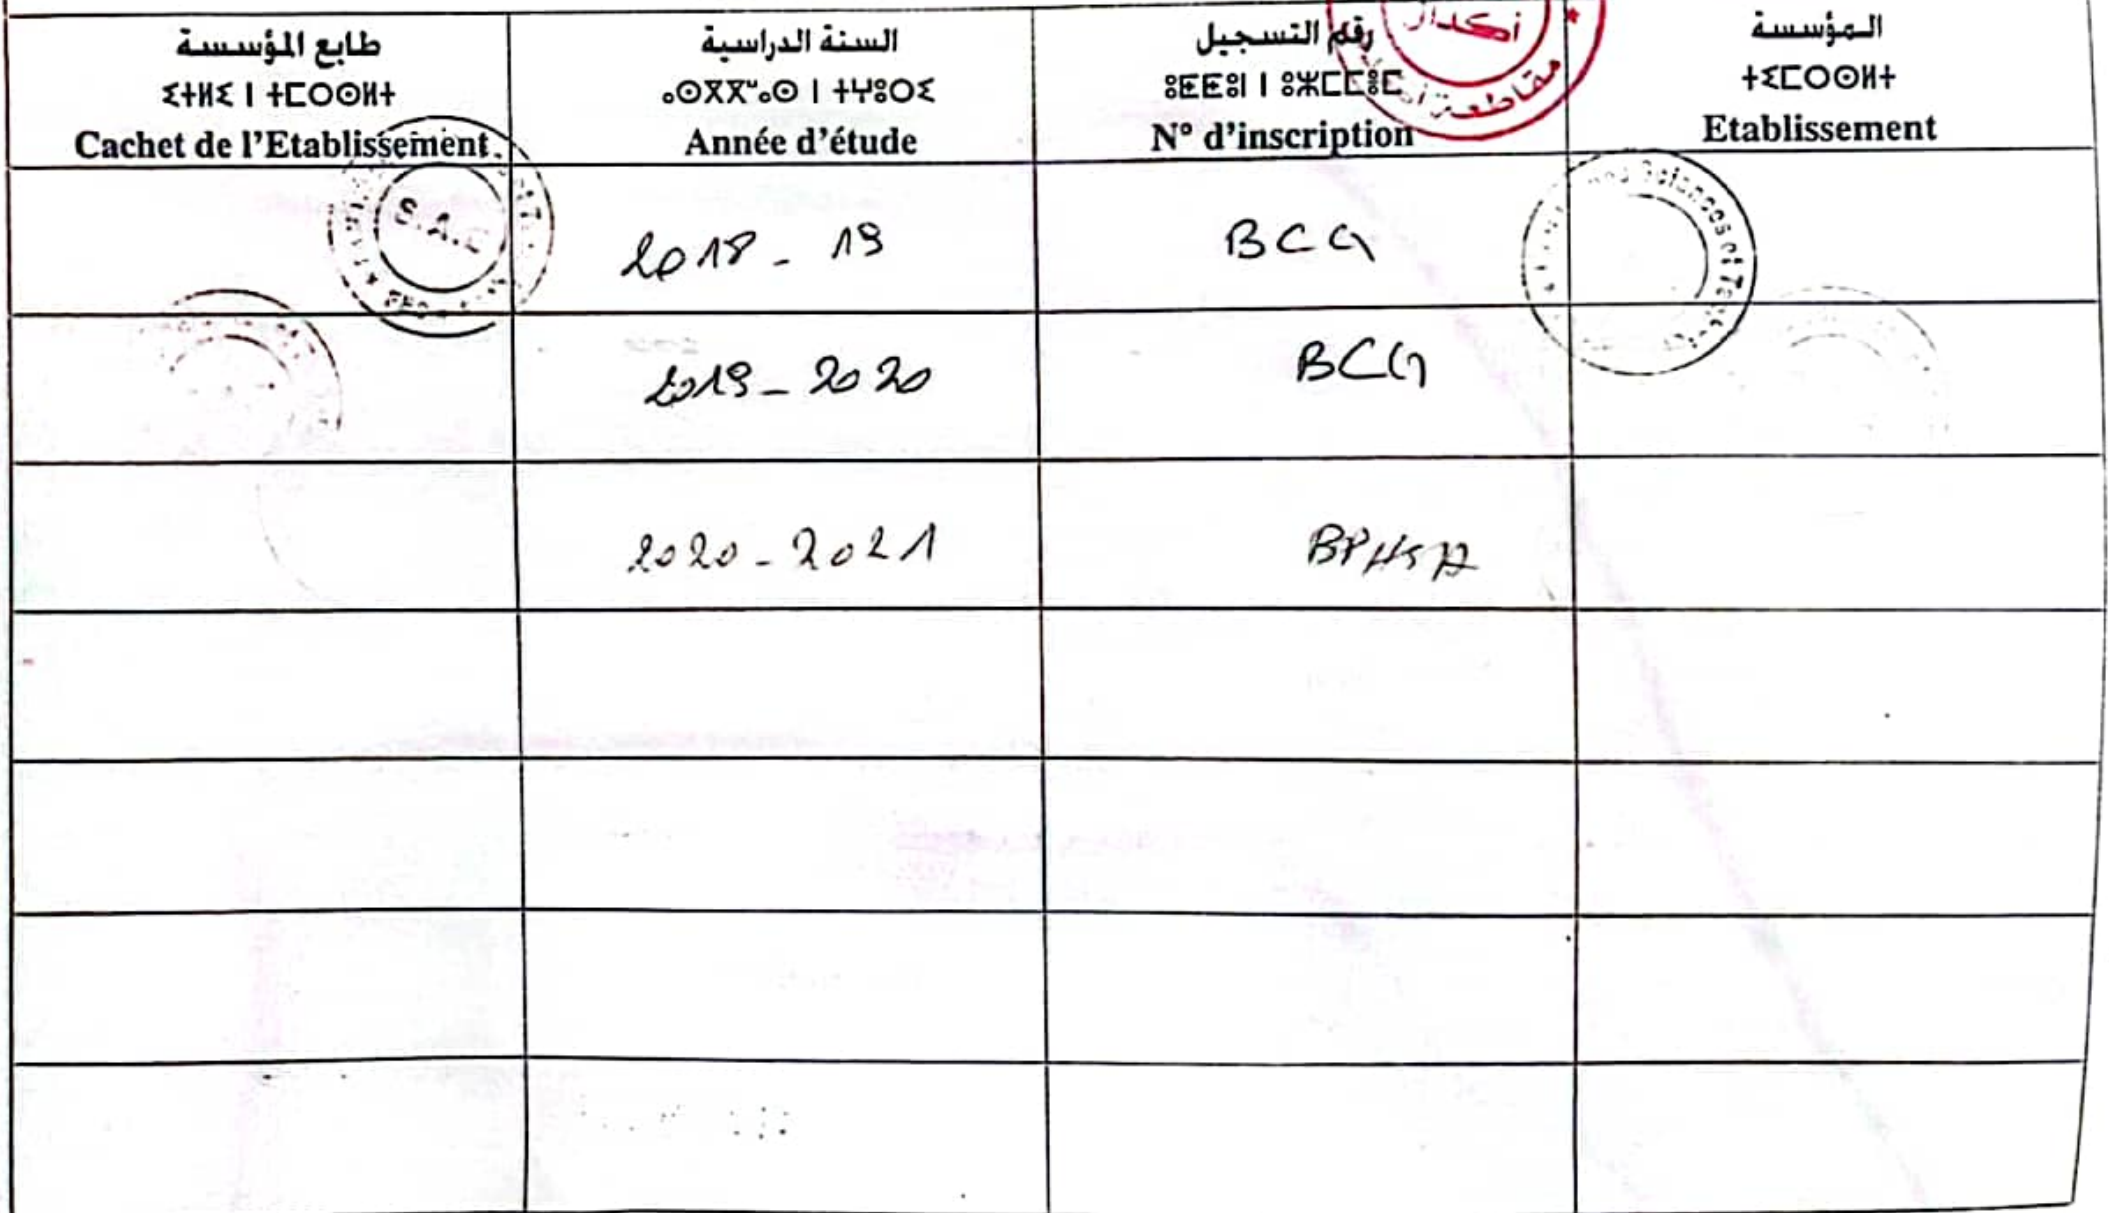 طابع المؤسسة
ⵉⵜⵍⵉ ⵏ ⵜⵎⵔⵙⵍⵜ
Cachet de l'Etablissement
السنة الدراسية
ⴰⵙⴳⴳⵯⴰⵙ ⵏ ⵜⵖⵓⵔⵉ
Année d'étude
رقم التسجيل
ⵓⵟⵟⵓⵏ ⵏ ⵓⵣⵎⵎⵓⵎ
N° d'inscription
المؤسسة
ⵜⵉⵎⵔⵙⵍⵜ
Etablissement
أكدال
مقاطعة
S.A.E
Sciences et
2018 - 19
BCG
2019 - 2020
BCG
2020 - 2021